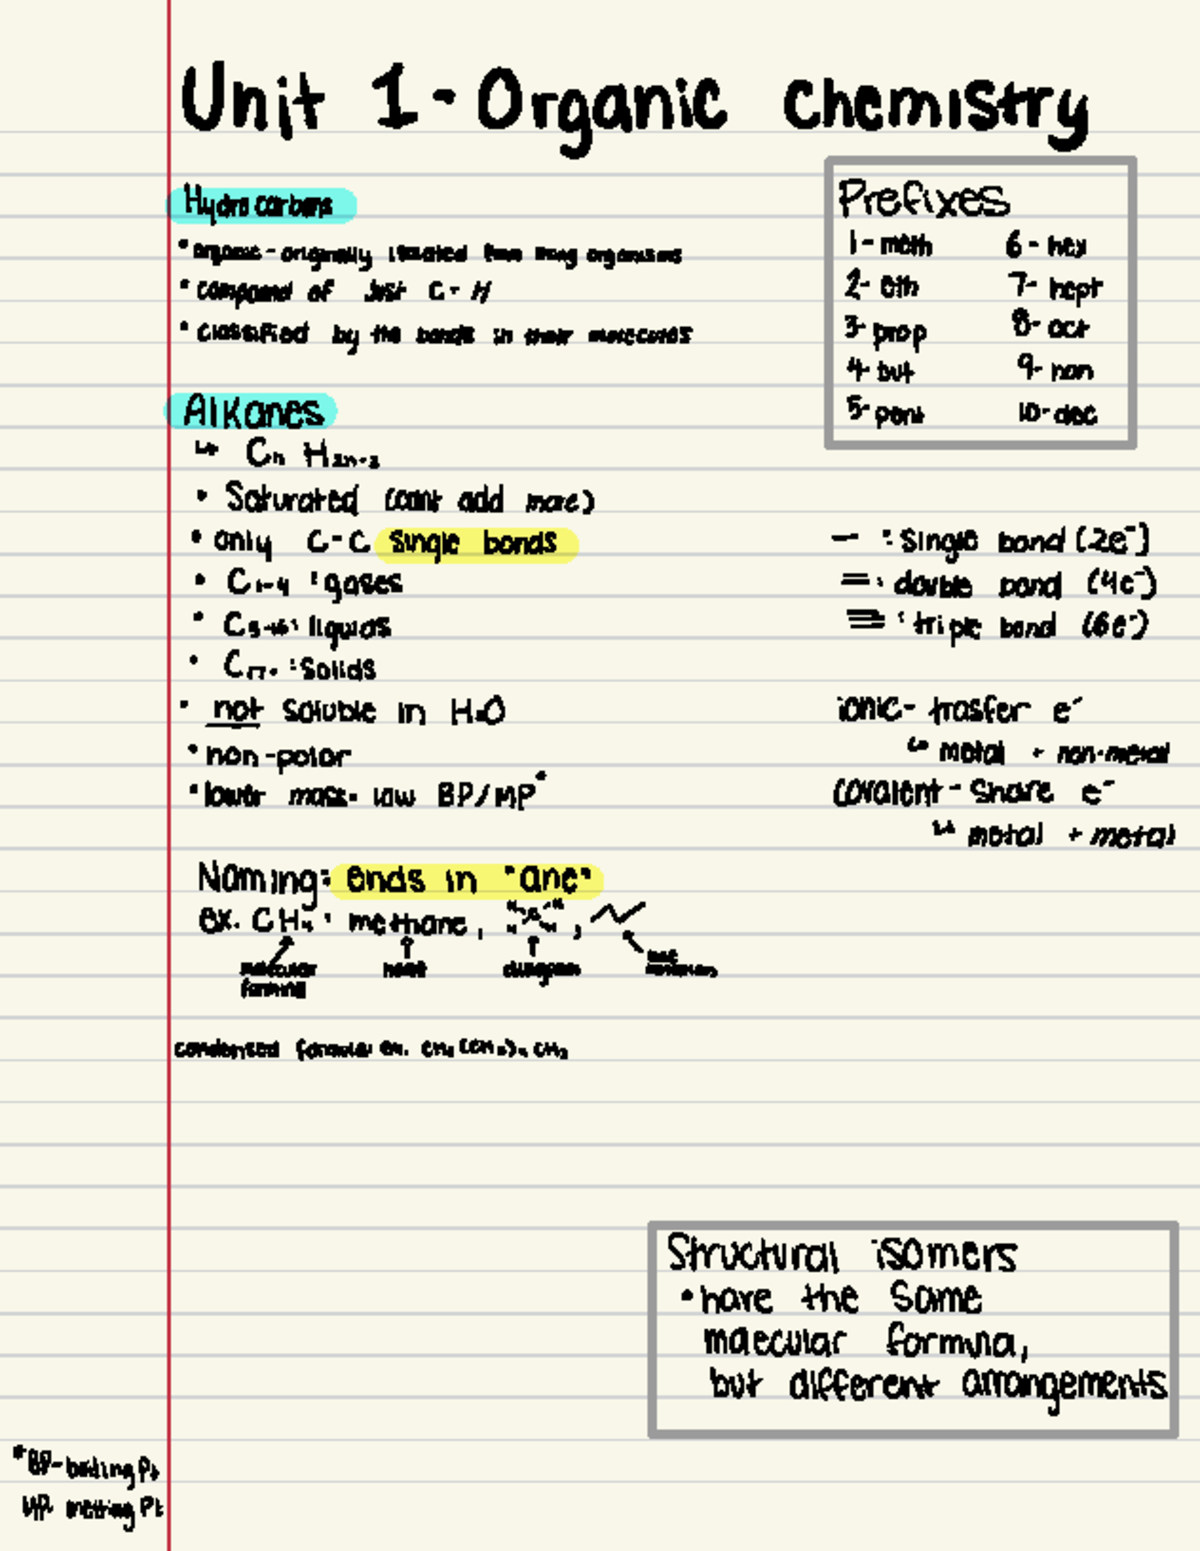 Unit 1 - Organic Chemistry
Hydrocarbons
• organic - originally isolated from living organisms
• compound of just C - H
• classified by the bonds in their molecules
Prefixes
1 - meth
2 - eth
3 - prop
4 - but
5 - pent
6 - hex
7 - hept
8 - oct
9 - non
10 - dec
Alkanes
↳ Cn H2n+2
• Saturated (cant add more)
• only C-C single bonds
• C1-4 : gases
• C5-16 : liquids
• C17+ : Solids
• not soluble in H2O
• non-polar
• lower mass = low BP/MP*
— : Single bond (2e⁻)
= : double bond (4e⁻)
≡ : triple bond (6e⁻)
ionic - trasfer e⁻
↳ metal + non-metal
covalent - share e⁻
↳ metal + metal
Naming: ends in "ane"
ex. CH4 : methane, ,
molecular formula
name
diagram
condensed formula: ex. CH3
Structural isomers
• have the same
molecular formula,
but different arrangements
*BP - boiling Pt
MP - melting Pt